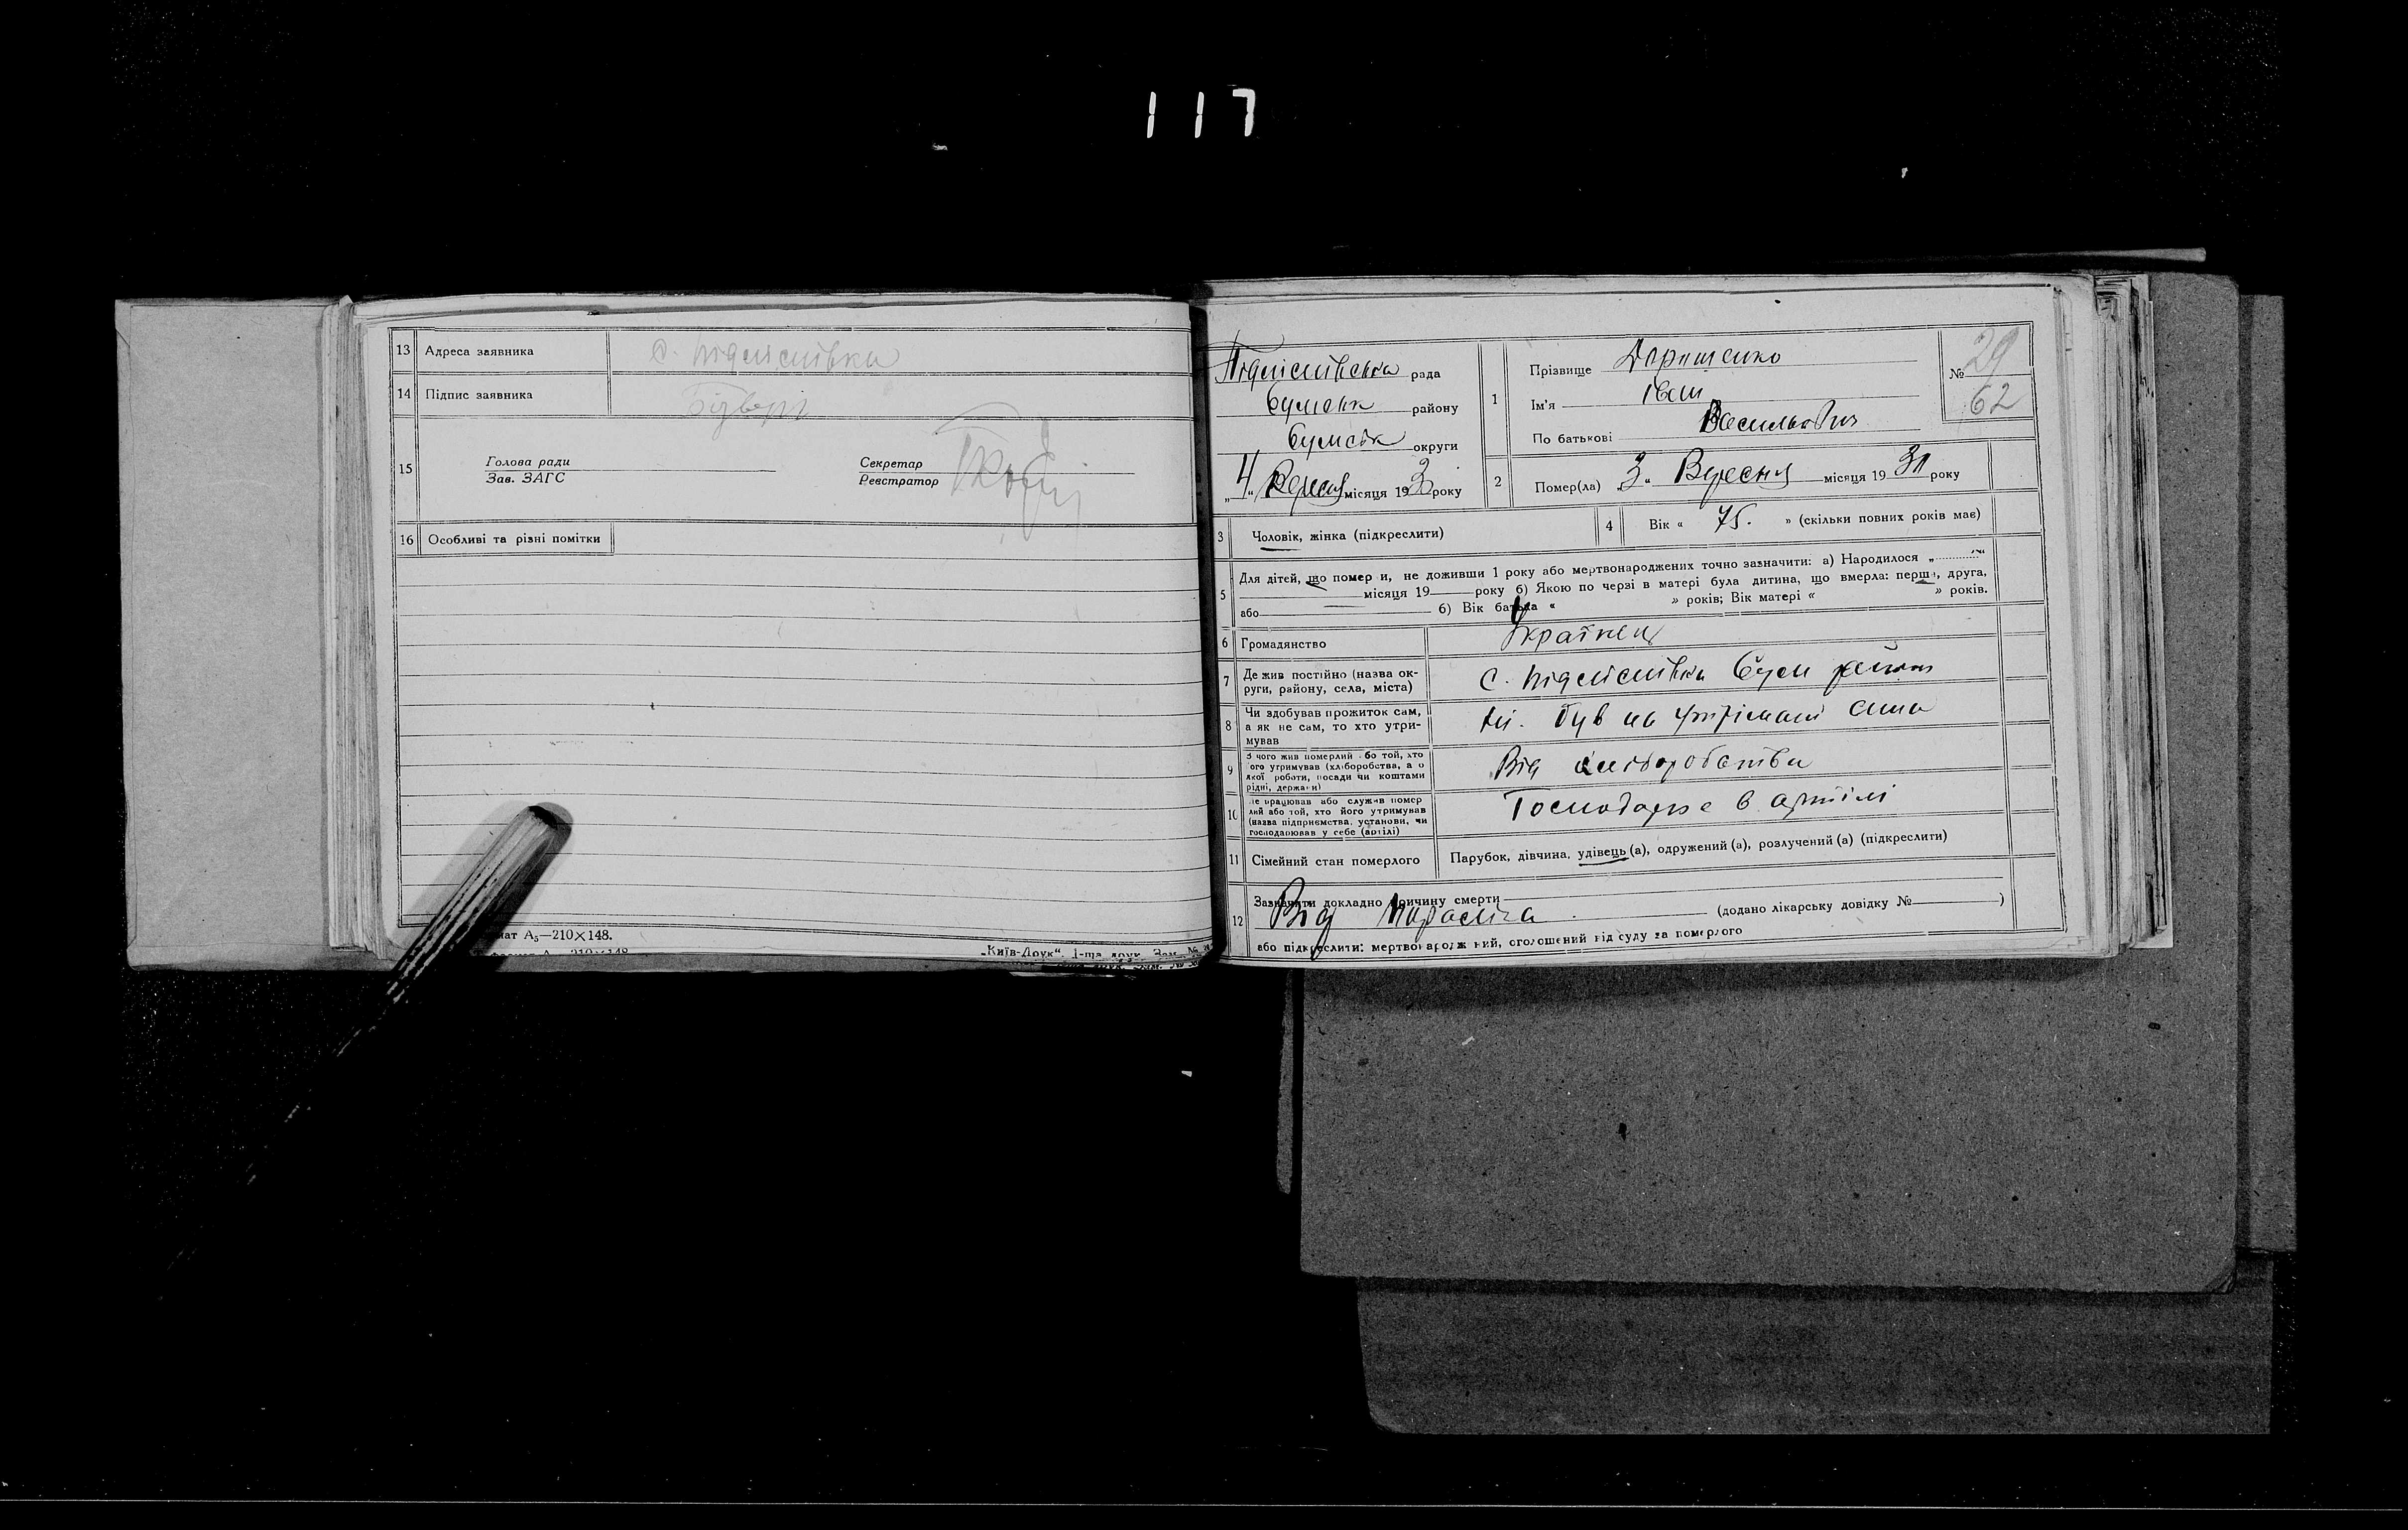 117
13 Адреса заявника с. Підліснівка
14 Підпис заявника
15 Голова ради
Зав. ЗАГС
Секретар
Реєстратор
16 Особливі та різні помітки
мат А₅—210×148.
„Київ-Друк“. 1-ша друк. Зам. №
Підліснівська рада
Сумськ району
Сумськ округи
„4“ Вересня місяця 193 року
1 Прізвище Дорошенко
Ім'я Іван
По батькові Васильович
№ 29
62
2 Помер(ла) „3“ Вересня місяця 1930 року
3 Чоловік, жінка (підкреслити)
4 Вік « 75. » (скільки повних років має)
5 Для дітей, що помер и, не доживши 1 року або мертвонароджених точно зазначити: а) Народилося „ “
місяця 19 року б) Якою по черзі в матері була дитина, що вмерла: перша, друга,
або б) Вік батька « » років; Вік матері « » років.
6 Громадянство Українец
7 Де жив постійно (назва ок-
руги, району, села, міста) с. Підліснівка Сум район
8 Чи здобував прожиток сам,
а як не сам, то хто утри-
мував Ні. був на утрімані сина
9 З чого жив померлий або той, хто
ого утримував (хліборобства, а о
якої роботи, посади чи коштами
рідні, держави) Від хліборобства
10 де працював або служив помер
лий або той, хто його утримував
(назва підприємства, установи, чи
господарював у себе (артілі) Господарює в артілі
11 Сімейний стан померлого Парубок, дівчина, удівець (а), одружений (а), розлучений (а) (підкреслити)
12 Зазначити докладно причину смерти
Від параліча (додано лікарську довідку № )
або підкреслити: мертвонародж ний, оголошений від суду за померлого